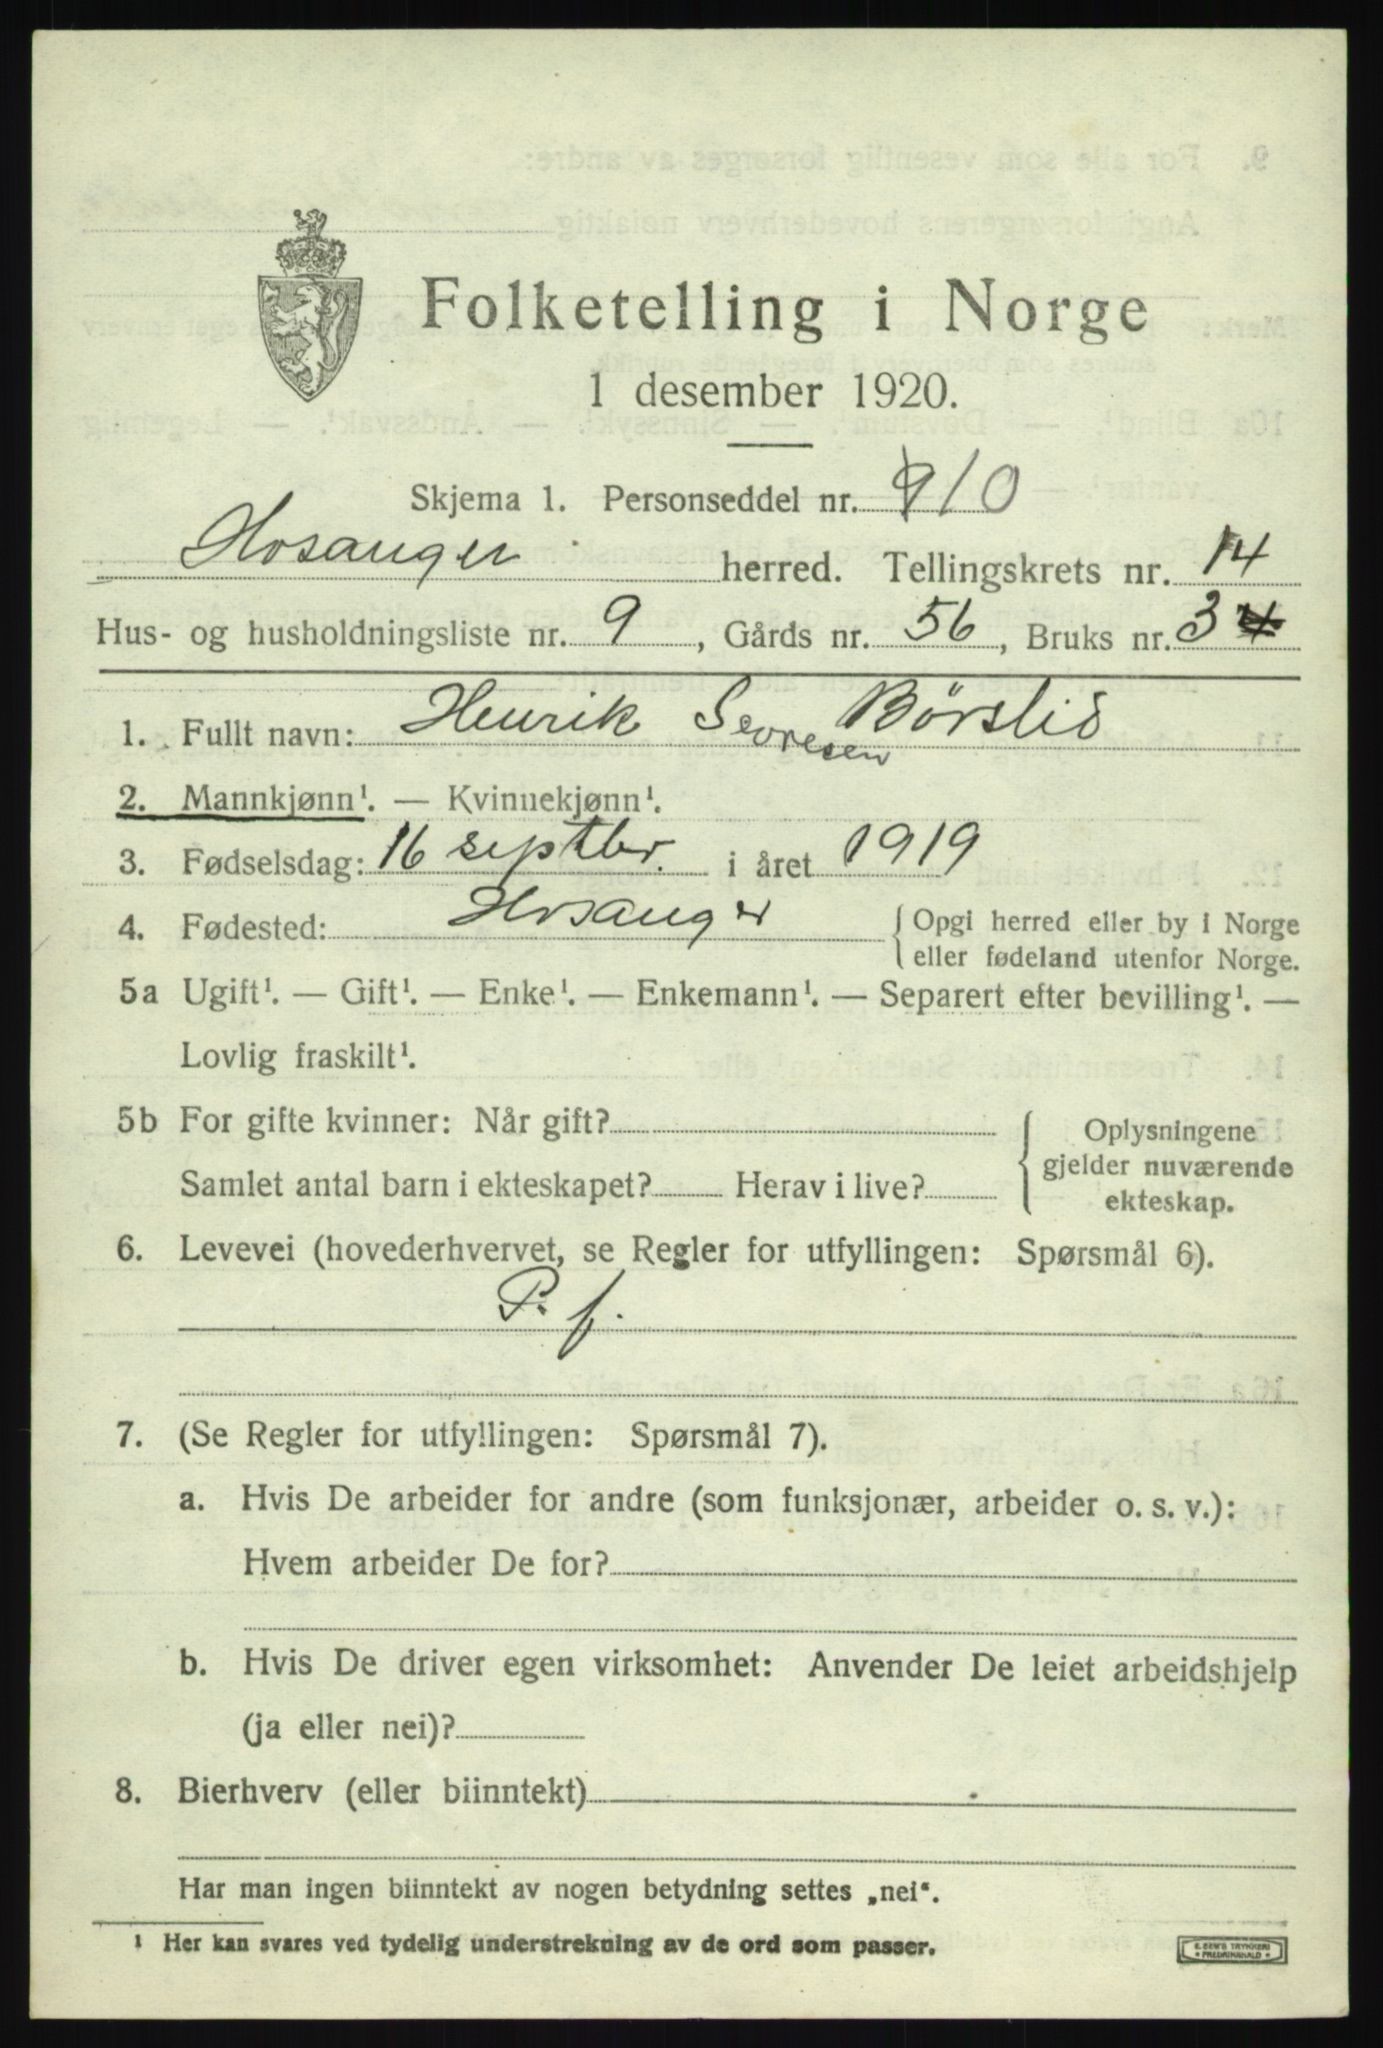 Folketelling i Norge
1 desember 1920.
Skjema 1. Personseddel nr. 9 10
Hosanger herred. Tellingskrets nr. 14
Hus- og husholdningsliste nr. 9, Gårds nr. 56, Bruks nr. 3 4
1. Fullt navn: Henrik Sevresen Børslid
2. Mannkjønn¹. — Kvinnekjønn¹.
3. Fødselsdag: 16 septbr. i året 1919
4. Fødested: Hosanger { Opgi herred eller by i Norge
eller fødeland utenfor Norge.
5a Ugift¹. — Gift¹. — Enke¹. — Enkemann¹. — Separert efter bevilling¹. —
Lovlig fraskilt¹.
5b For gifte kvinner: Når gift?
Samlet antal barn i ekteskapet? Herav i live?
{ Oplysningene
gjelder nuværende
ekteskap.
6. Levevei (hovederhvervet, se Regler for utfyllingen: Spørsmål 6).
P. f.
7. (Se Regler for utfyllingen: Spørsmål 7).
a. Hvis De arbeider for andre (som funksjonær, arbeider o. s. v.):
Hvem arbeider De for?
b. Hvis De driver egen virksomhet: Anvender De leiet arbeidshjelp
(ja eller nei)?
8. Bierhverv (eller biinntekt)
Har man ingen biinntekt av nogen betydning settes „nei“.
¹ Her kan svares ved tydelig understrekning av de ord som passer.
E. SEM'S TRYKKERI
FREDRIKSHALD